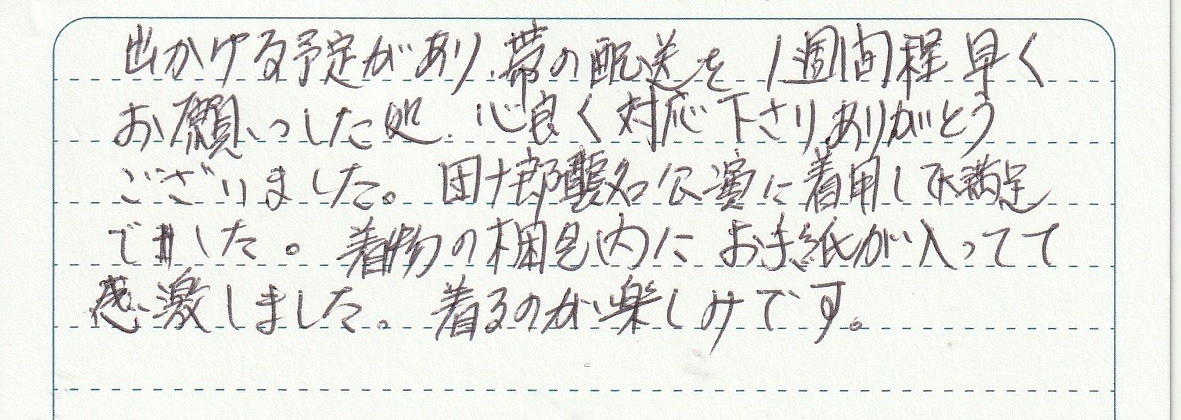 出かける予定があり、帯の配送を1週間程早く
お願いした処、心良く対応下さりありがとう
ございました。団十郎襲名公演に着用して大満足
でした。着物の梱包内にお手紙が入ってて
感激しました。着るのが楽しみです。